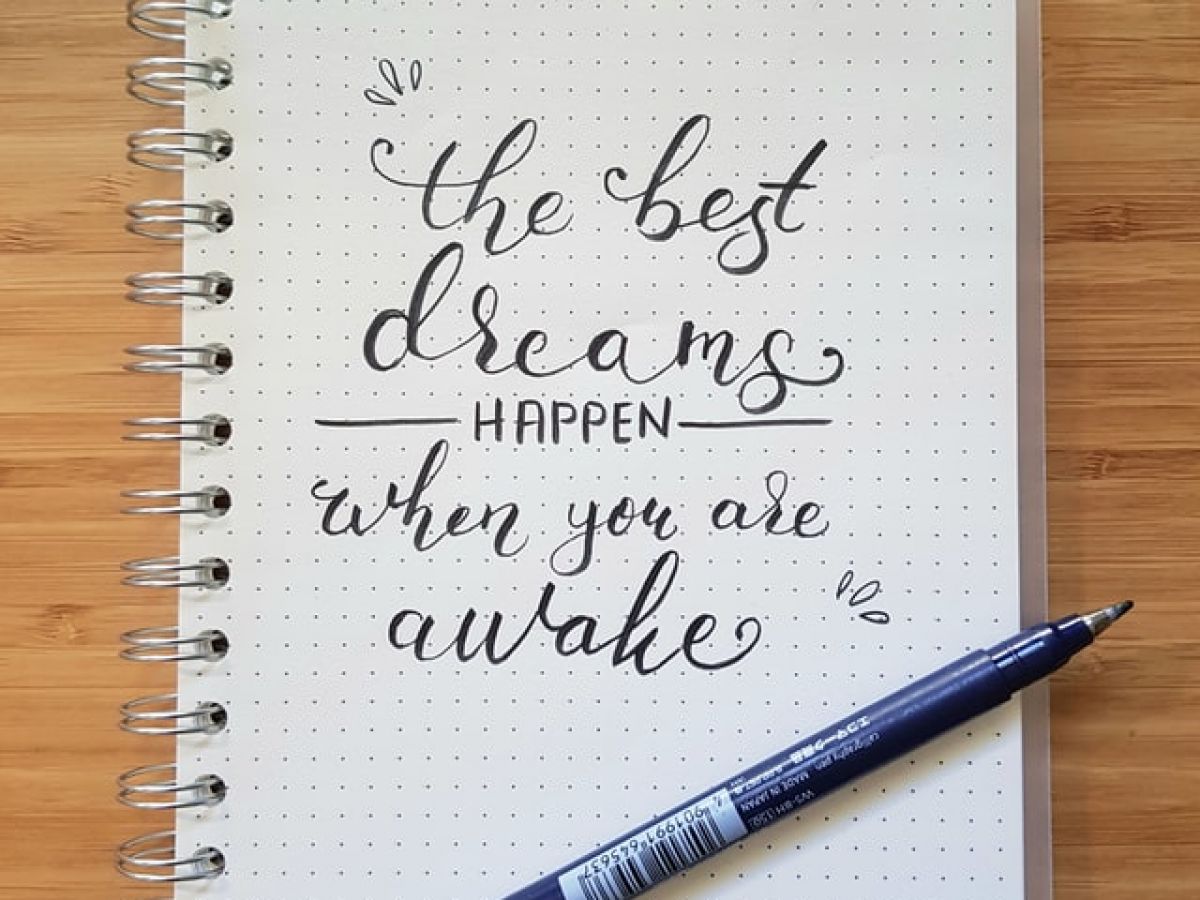 the best
dreams
HAPPEN
when you are
awake
エコマーク商品
calligraphy pen MADE IN JAPAN
WS-BH(150)
4901991645637